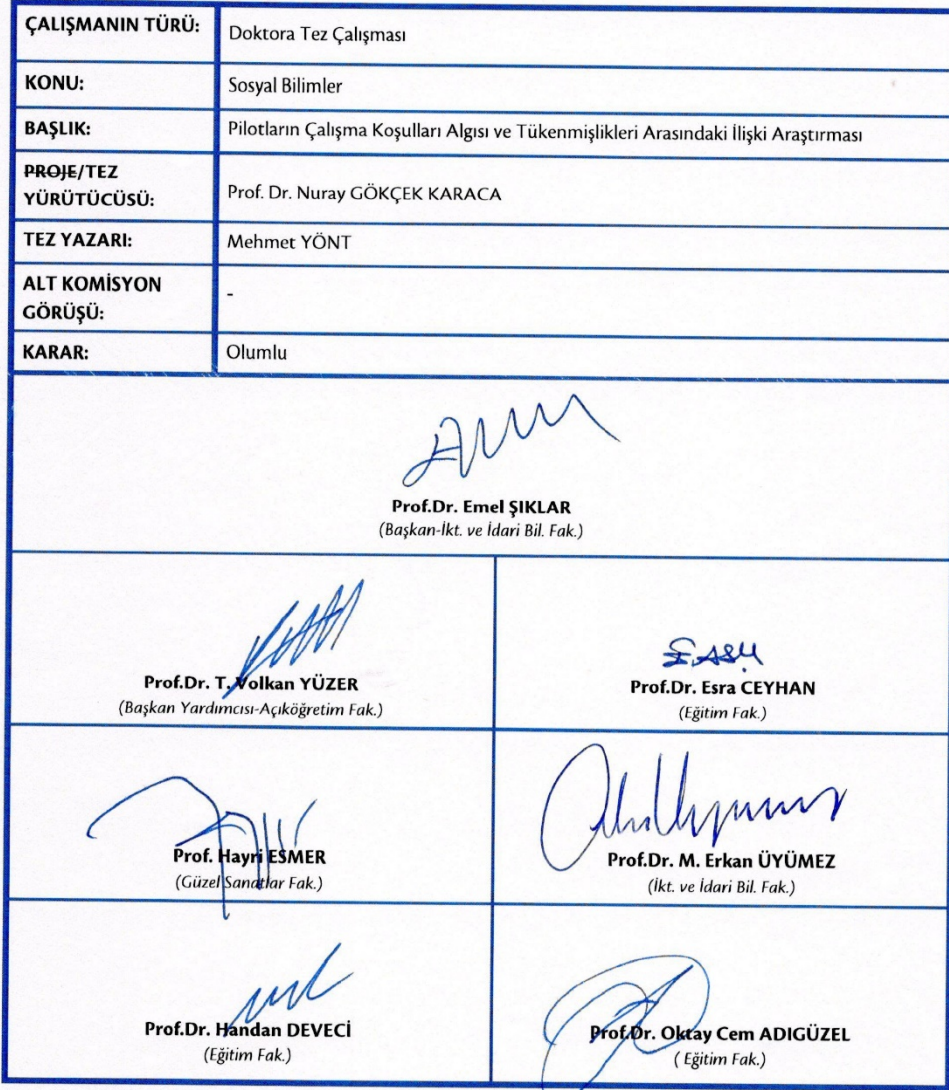 ÇALIŞMANIN TÜRÜ: Doktora Tez Çalışması
KONU: Sosyal Bilimler
BAŞLIK: Pilotların Çalışma Koşulları Algısı ve Tükenmişlikleri Arasındaki İlişki Araştırması
PROJE/TEZ
YÜRÜTÜCÜSÜ: Prof. Dr. Nuray GÖKÇEK KARACA
TEZ YAZARI: Mehmet YÖNT
ALT KOMİSYON
GÖRÜŞÜ: -
KARAR: Olumlu
Prof.Dr. Emel ŞIKLAR
(Başkan-İkt. ve İdari Bil. Fak.)
Prof.Dr. T. Volkan YÜZER
(Başkan Yardımcısı-Açıköğretim Fak.)
Prof.Dr. Esra CEYHAN
(Eğitim Fak.)
Prof. Hayri ESMER
(Güzel Sanatlar Fak.)
Prof.Dr. M. Erkan ÜYÜMEZ
(İkt. ve İdari Bil. Fak.)
Prof.Dr. Handan DEVECİ
(Eğitim Fak.)
Prof.Dr. Oktay Cem ADIGÜZEL
( Eğitim Fak.)